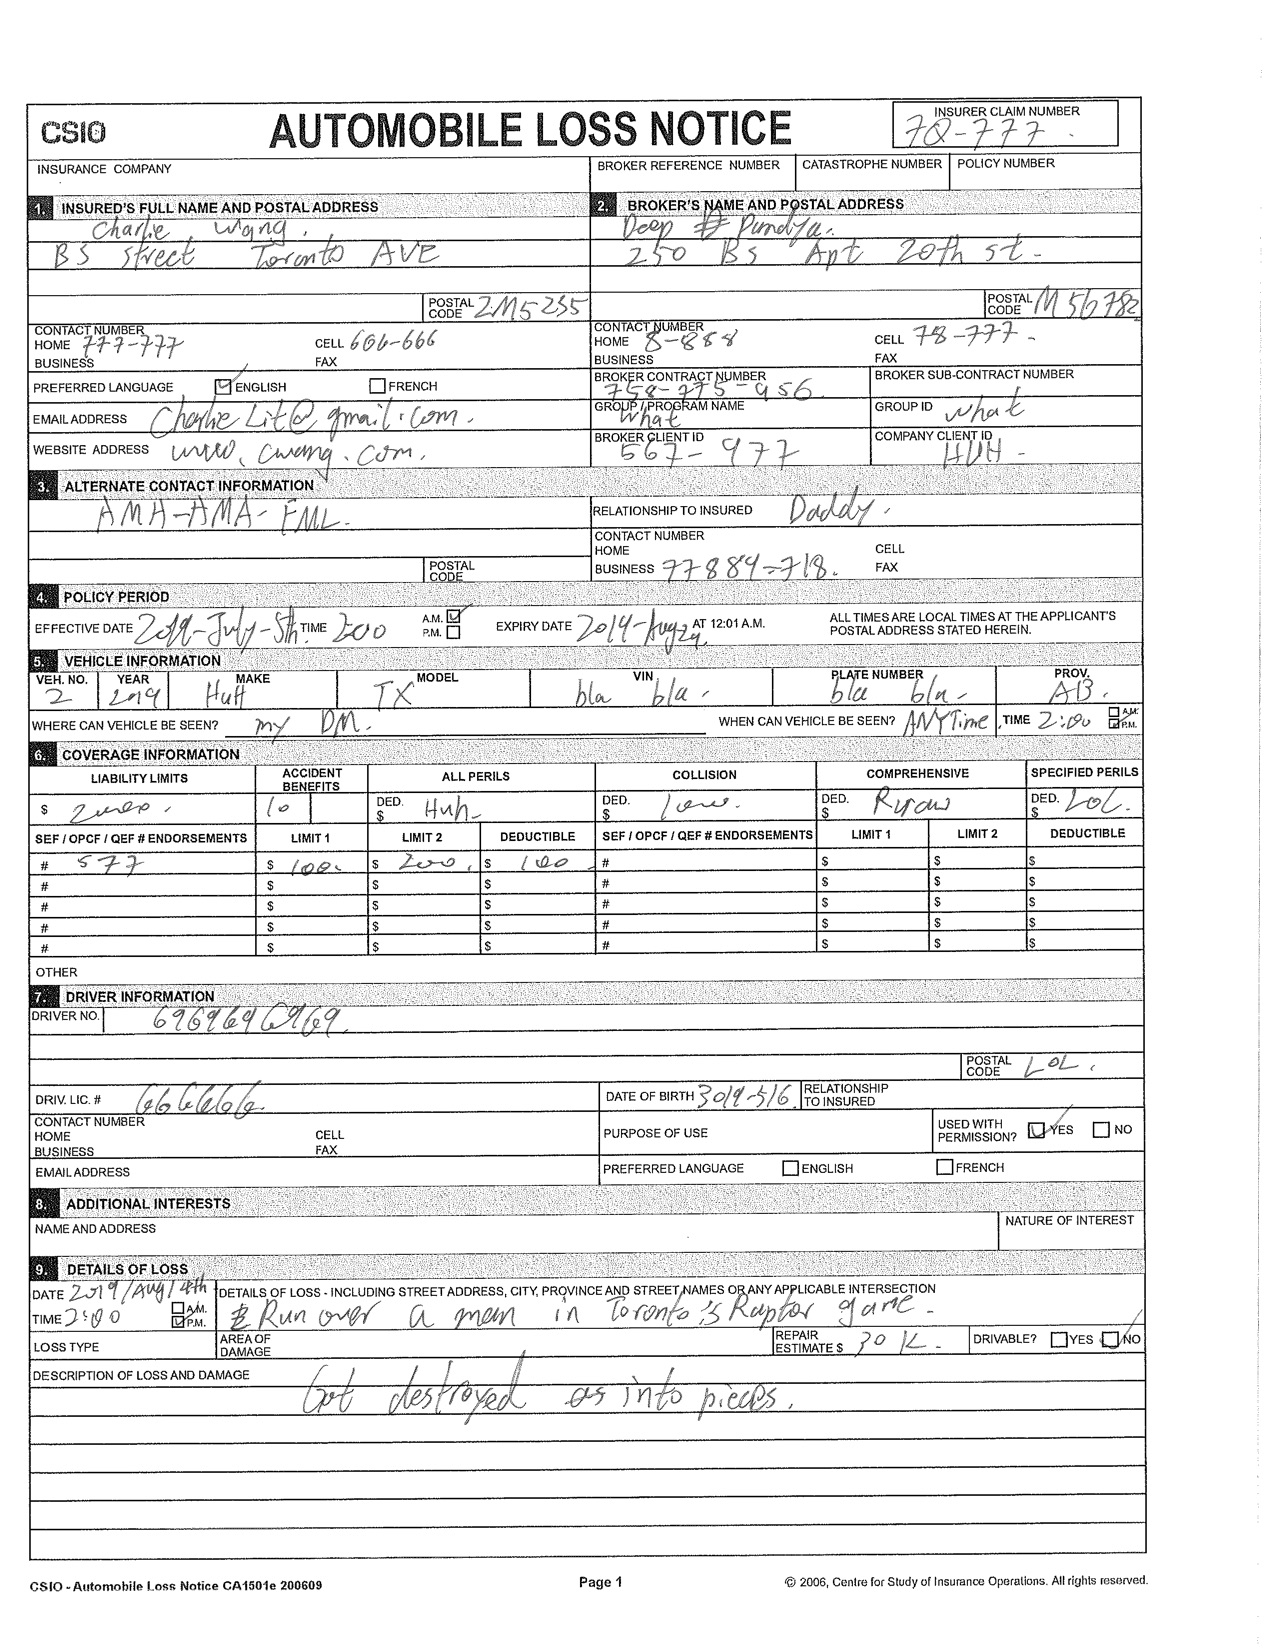 CSIO
AUTOMOBILE LOSS NOTICE
INSURER CLAIM NUMBER
78-777.
INSURANCE COMPANY
BROKER REFERENCE NUMBER CATASTROPHE NUMBER POLICY NUMBER
1. INSURED'S FULL NAME AND POSTAL ADDRESS
Charlie Wang.
BS Street Toronto AVE
POSTAL CODE 2M5235
CONTACT NUMBER
HOME 777-777 CELL 666-666
BUSINESS FAX
PREFERRED LANGUAGE ENGLISH FRENCH
EMAIL ADDRESS Charlie Lit@gmail.com.
WEBSITE ADDRESS www.cwang.com.
2. BROKER'S NAME AND POSTAL ADDRESS
Deep Pandya.
250 BS Apt 20th st.
POSTAL CODE M56782
CONTACT NUMBER
HOME 8-888 CELL 78-777
BUSINESS FAX
BROKER CONTRACT NUMBER BROKER SUB-CONTRACT NUMBER
758-775-956
GROUP / PROGRAM NAME GROUP ID
what what
BROKER CLIENT ID COMPANY CLIENT ID
567-977 HUH-
3. ALTERNATE CONTACT INFORMATION
AMA-AMA-FML.
RELATIONSHIP TO INSURED Daddy.
CONTACT NUMBER
HOME CELL
BUSINESS 77889-718. FAX
POSTAL CODE
4. POLICY PERIOD
EFFECTIVE DATE 2019-July-5th TIME 200 A.M. P.M. EXPIRY DATE 2019-Aug29 AT 12:01 A.M. ALL TIMES ARE LOCAL TIMES AT THE APPLICANT'S POSTAL ADDRESS STATED HEREIN.
5. VEHICLE INFORMATION
VEH. NO. YEAR MAKE MODEL VIN PLATE NUMBER PROV.
2 2019 Huh TX bla bla. bla bla- AB.
WHERE CAN VEHICLE BE SEEN? my DM. WHEN CAN VEHICLE BE SEEN? ANYTime TIME 2:00 A.M. P.M.
6. COVERAGE INFORMATION
LIABILITY LIMITS ACCIDENT BENEFITS ALL PERILS COLLISION COMPREHENSIVE SPECIFIED PERILS
$ 10 DED. $ Huh- DED. $ DED. $ DED. $ LOL.
SEF / OPCF / QEF # ENDORSEMENTS LIMIT 1 LIMIT 2 DEDUCTIBLE SEF / OPCF / QEF # ENDORSEMENTS LIMIT 1 LIMIT 2 DEDUCTIBLE
# 577 $ 100. $ 200. $ 100 # $ $ $
# $ $ $ # $ $ $
# $ $ $ # $ $ $
# $ $ $ # $ $ $
# $ $ $ # $ $ $
OTHER
7. DRIVER INFORMATION
DRIVER NO. 6969696969.
POSTAL CODE LOL.
DRIV. LIC. # 666666. DATE OF BIRTH 3019-5/6. RELATIONSHIP TO INSURED
CONTACT NUMBER
HOME CELL
BUSINESS FAX
PURPOSE OF USE USED WITH PERMISSION? YES NO
EMAIL ADDRESS PREFERRED LANGUAGE ENGLISH FRENCH
8. ADDITIONAL INTERESTS
NAME AND ADDRESS NATURE OF INTEREST
9. DETAILS OF LOSS
DATE 2019/Aug/4th DETAILS OF LOSS - INCLUDING STREET ADDRESS, CITY, PROVINCE AND STREET NAMES OR ANY APPLICABLE INTERSECTION
TIME 2:00 A.M. P.M. Run over a man in Toronto's Raptor game.
LOSS TYPE AREA OF DAMAGE REPAIR ESTIMATE $ 30 K. DRIVABLE? YES NO
DESCRIPTION OF LOSS AND DAMAGE
Got destroyed as into pieces.
CSIO - Automobile Loss Notice CA1501e 200609 Page 1 © 2006, Centre for Study of Insurance Operations. All rights reserved.